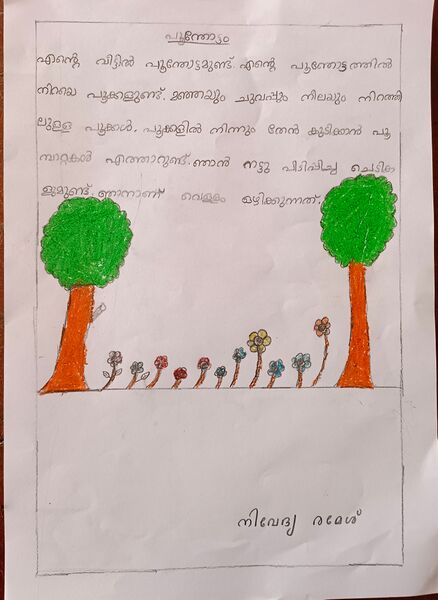 പൂന്തോട്ടം
എന്റെ വീട്ടിൽ പൂന്തോട്ടമുണ്ട്. എന്റെ പൂന്തോട്ടത്തിൽ
നിറയെ പൂക്കളുണ്ട്. മഞ്ഞയും ചുവപ്പും നീലയും നിറത്തി
ലുള്ള പൂക്കൾ. പൂക്കളിൽ നിന്നും തേൻ കുടിക്കാൻ പൂ
മ്പാറ്റകൾ എത്താറുണ്ട്. ഞാൻ നട്ടു പിടിപ്പിച്ച ചെടിക
ളുമുണ്ട്. ഞാനാണ് വെള്ളം ഒഴിക്കുന്നത്.
നിവേദ്യ രമേശ്